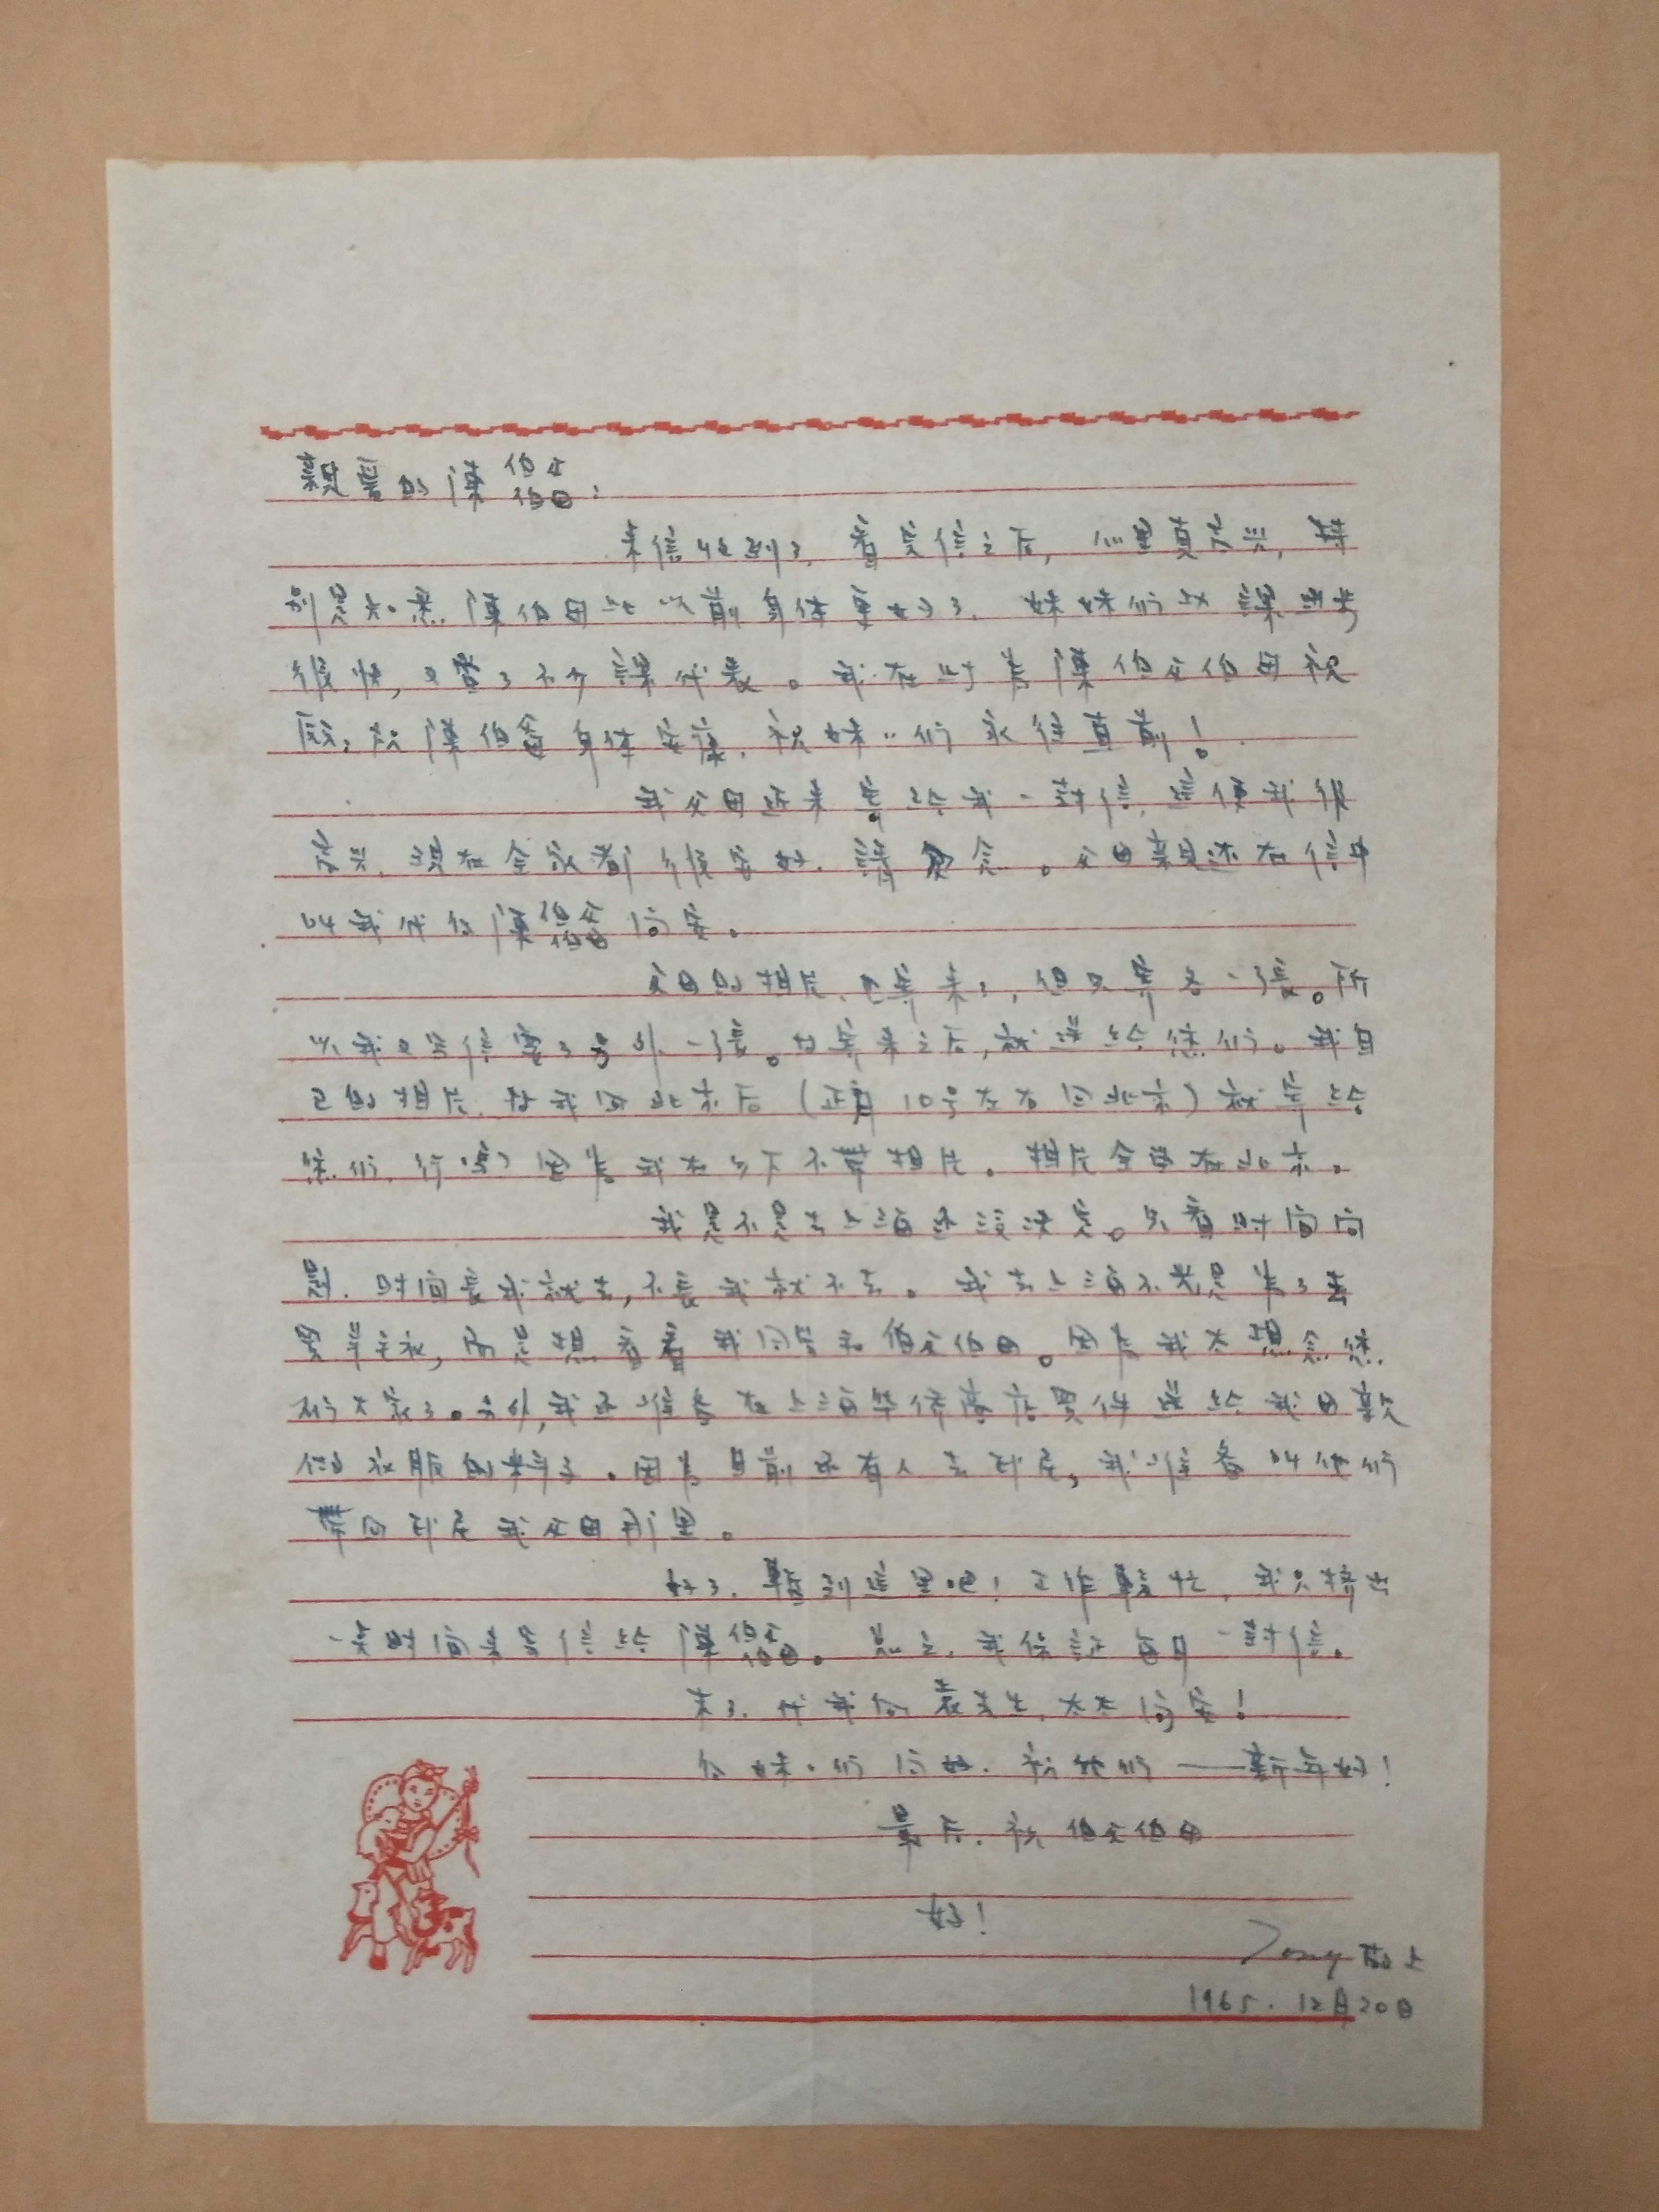 親愛的陳伯父伯母:
来信收到了,看完信之后,心里真高兴,特
别是知悉陳伯母比以前身体更好了,妹妹們功課思考
很快,又當了不少課代表。我在此为陳伯父伯母祝
愿,祝陳伯父伯母身体安康,祝妹妹們永往直前!
我父母近来寄给我一封信,這使我很
高兴,現在全家都很安好,請勿念。父母親还在信中
叫我代向陳伯父伯母问安。
父母的相片,已寄来了,但只寄各一張。所
以我又写信要了另外一張。待寄来之后,就送给您們。我自
己的相片,待我回北京后(正月10号左右回北京)就寄给
您們,行嗎?因为我在乡下不带相片。相片全留在北京。
我是不是去上海还没决定。只看时间问
題,时间長我就去,不長我就不去。我去上海不光是为了去
買羊毛衣,而是想看看我同学和伯父伯母。因为我太想念您
們大家了。另外,我还准备在上海华僑商店買件送给我母親
做衣服的料子。因为目前还有人去印尼,我准备叫他們
带回印尼我父母那里。
好了,暫到這里吧!工作較忙,我只擠出
一点时间来写信给陳伯父伯母。总之,我保証每月一封信。
末了,代我向袁先生,太太问安!
向妹妹們问好,祝她們——新年好!
最后,祝伯父伯母
好!
Tony 敬上
1965.12月20日